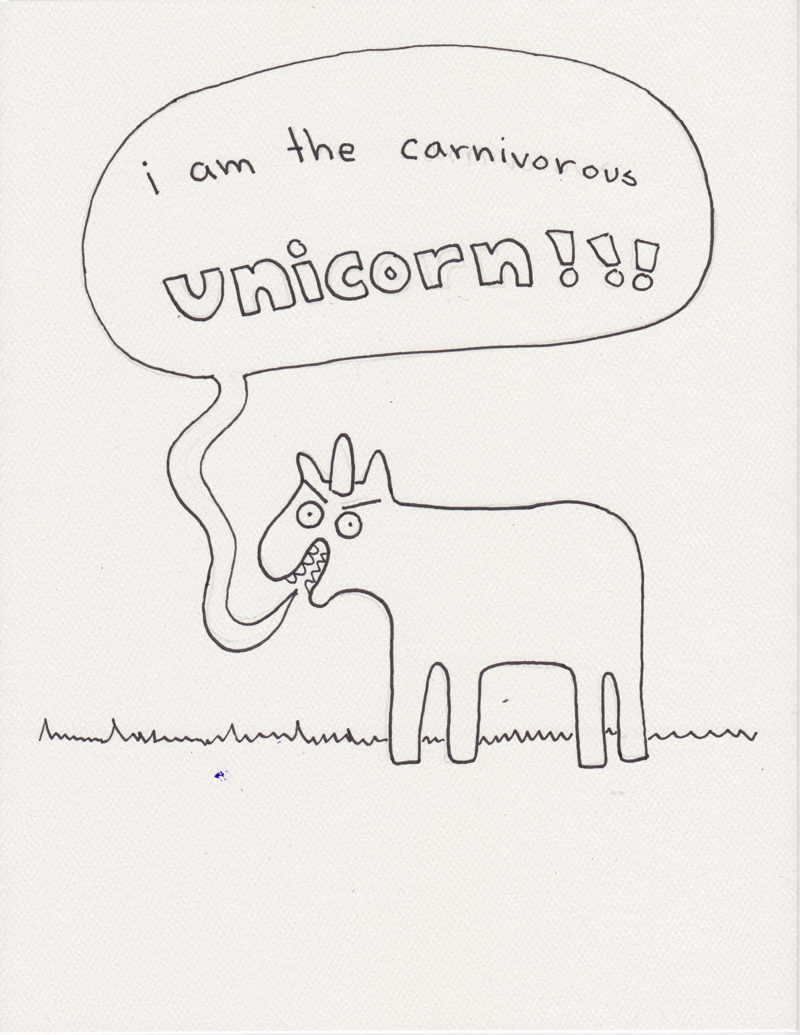 i am the carnivorous
unicorn!!!